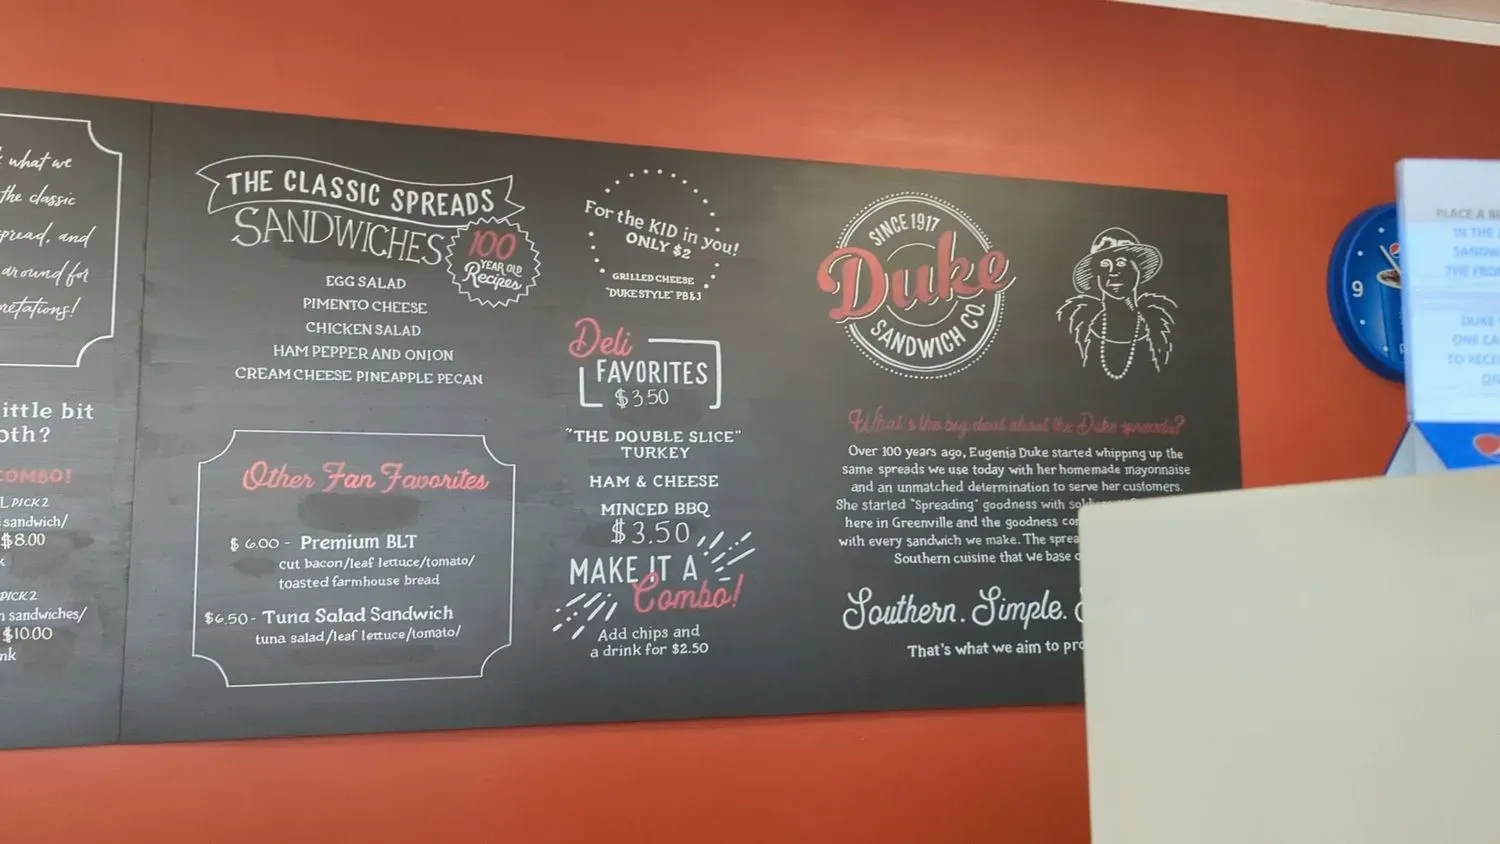 what we
the classic
spread, and
around for
little bit
COMBO!
PICK 2
sandwich/
$8.00
PICK 2
sandwiches/
$10.00
THE CLASSIC SPREADS
SANDWICHES
100
YEAR OLD
Recipes
EGG SALAD
PIMENTO CHEESE
CHICKEN SALAD
HAM PEPPER AND ONION
CREAM CHEESE PINEAPPLE PECAN
Other Fan Favorites
$6.00 - Premium BLT
cut bacon/leaf lettuce/tomato/
toasted farmhouse bread
$6.50 - Tuna Salad Sandwich
tuna salad/leaf lettuce/tomato/
For the KID in you!
ONLY $2
GRILLED CHEESE
"DUKE STYLE" PB&J
Deli
FAVORITES
$3.50
"THE DOUBLE SLICE"
TURKEY
HAM & CHEESE
MINCED BBQ
$3.50
MAKE IT A
Combo!
Add chips and
a drink for $2.50
SINCE 1917
Duke
SANDWICH CO.
What's the big deal about the Duke spreads?
Over 100 years ago, Eugenia Duke started whipping up the
same spreads we use today with her homemade mayonnaise
and an unmatched determination to serve her customers.
She started "Spreading" goodness with
here in Greenville and the goodness
with every sandwich we make. The
Southern cuisine that we base
Southern. Simple.
That's what we aim to
9
PLACE A
IN THE
THE
DUKE
TO